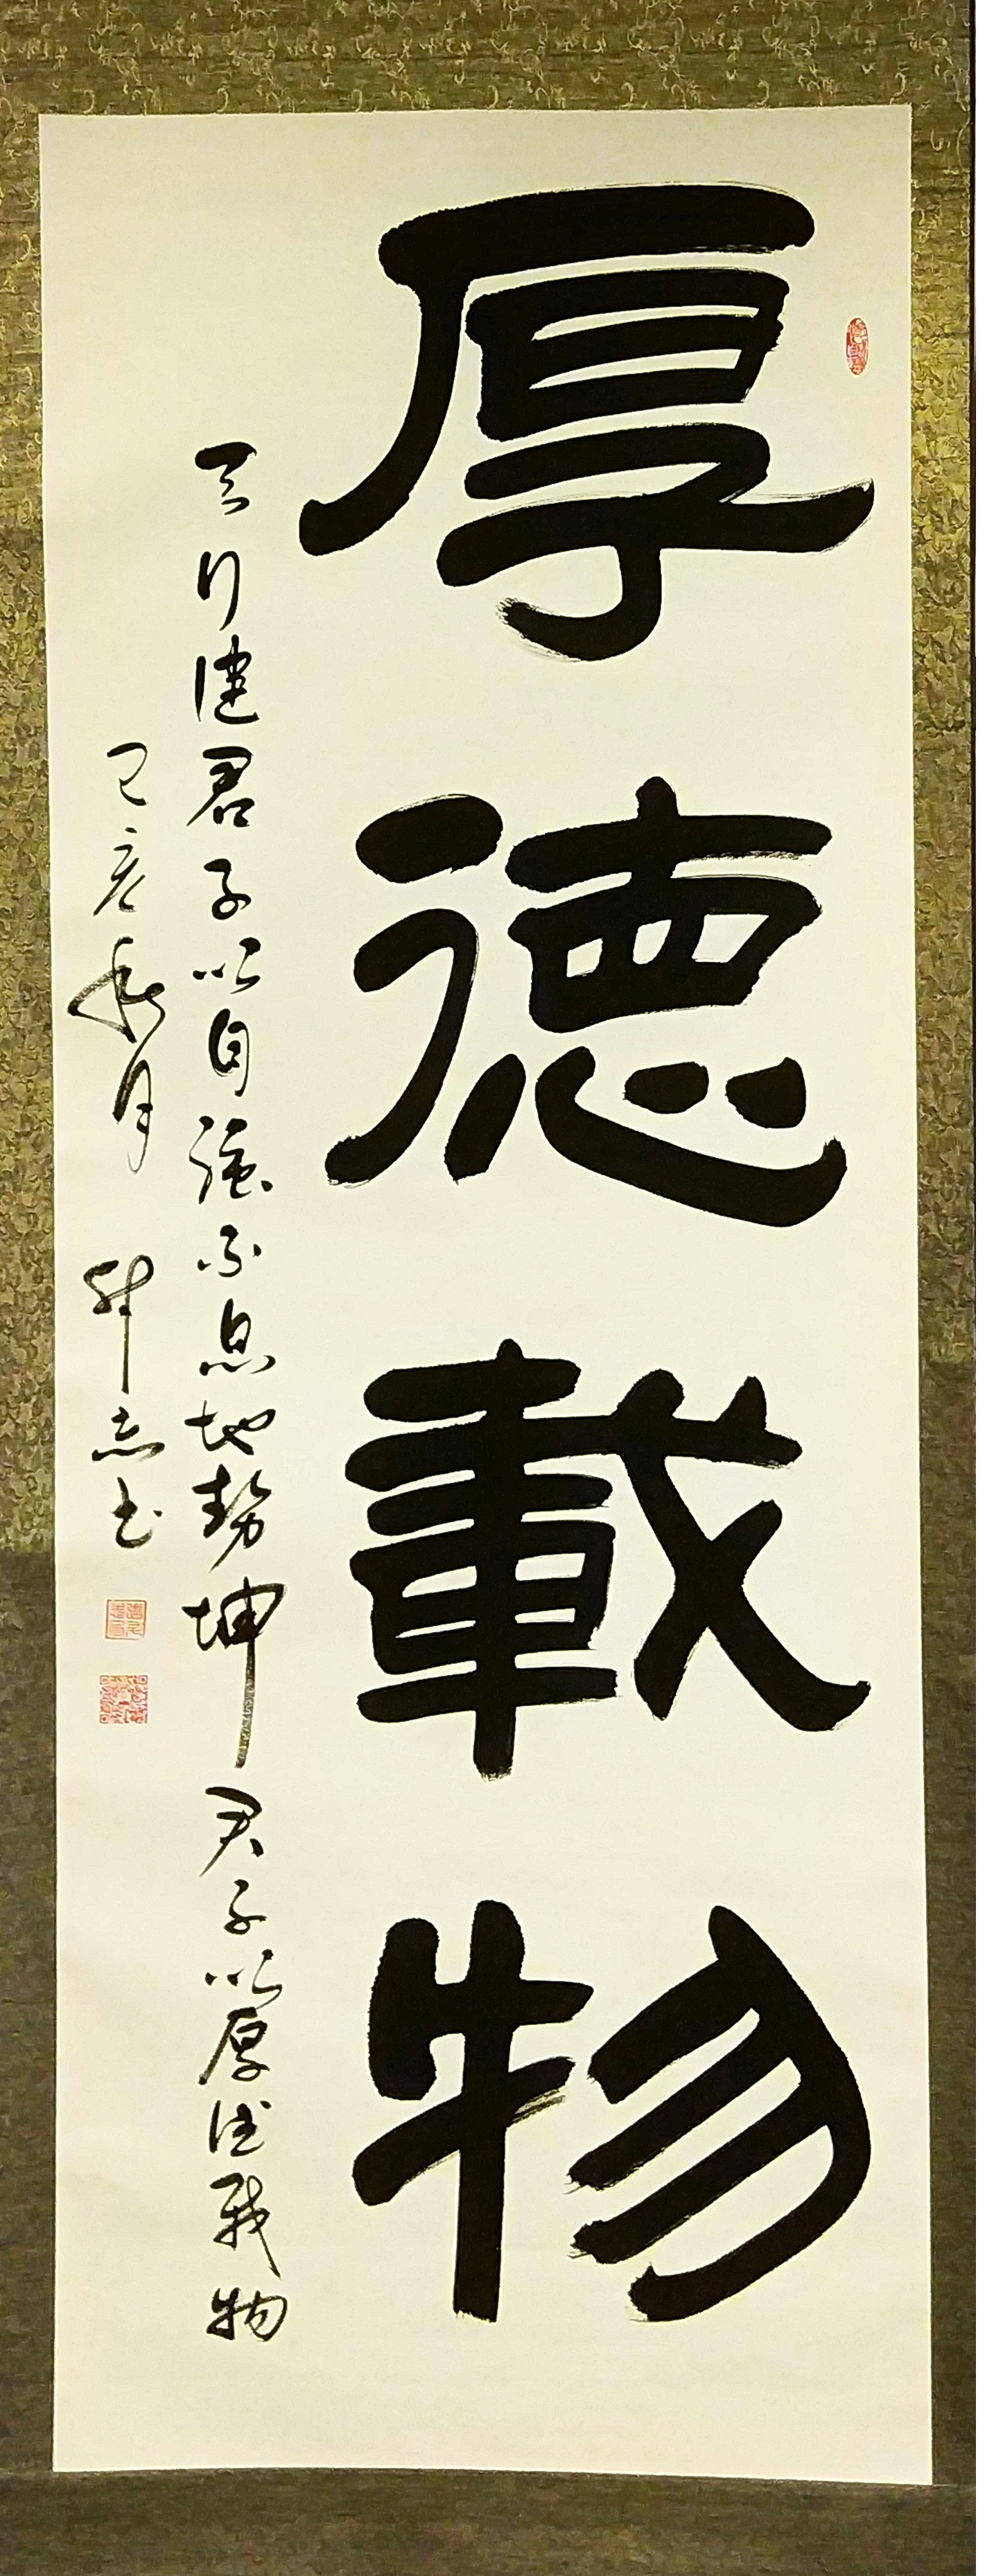 厚德載物
天行健君子以自強不息地勢坤君子以厚德載物
己亥秋月 志書